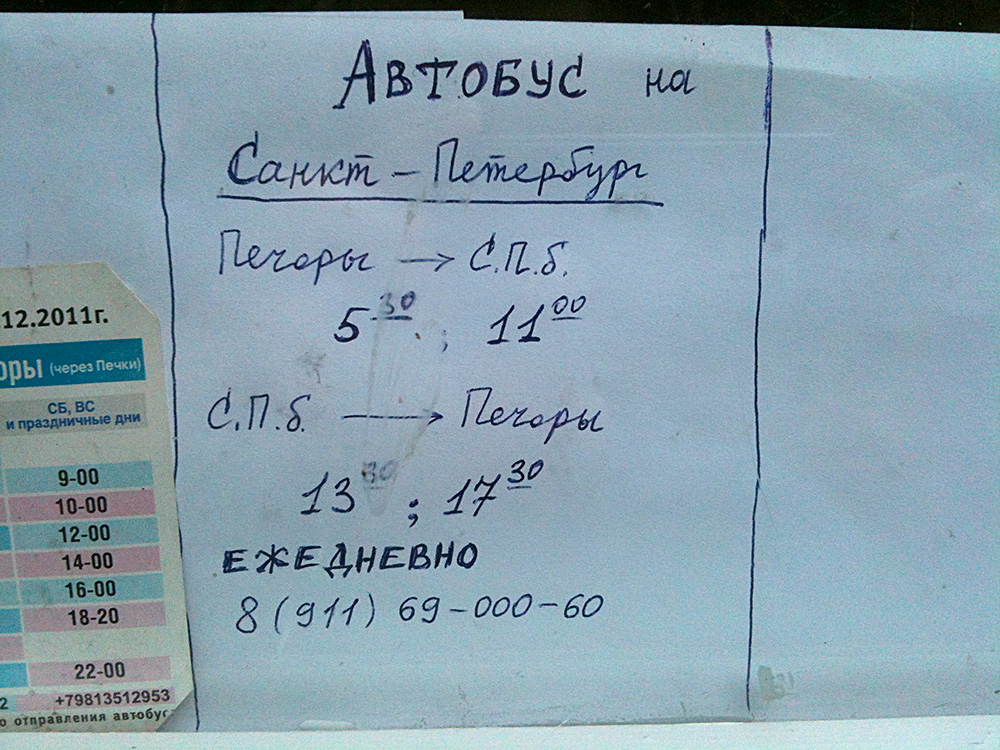 Автобус на
Санкт-Петербург
Печоры → С.П.б.
5 30 ; 11 00
С.П.б. → Печоры
13 30 ; 17 30
ЕЖЕДНЕВНО
8 (911) 69-000-60
.12.2011г.
оры (через Печки)
СБ, ВС
и праздничные дни
9-00
10-00
12-00
14-00
16-00
18-20
22-00
2 +79813512953
о отправления автобус